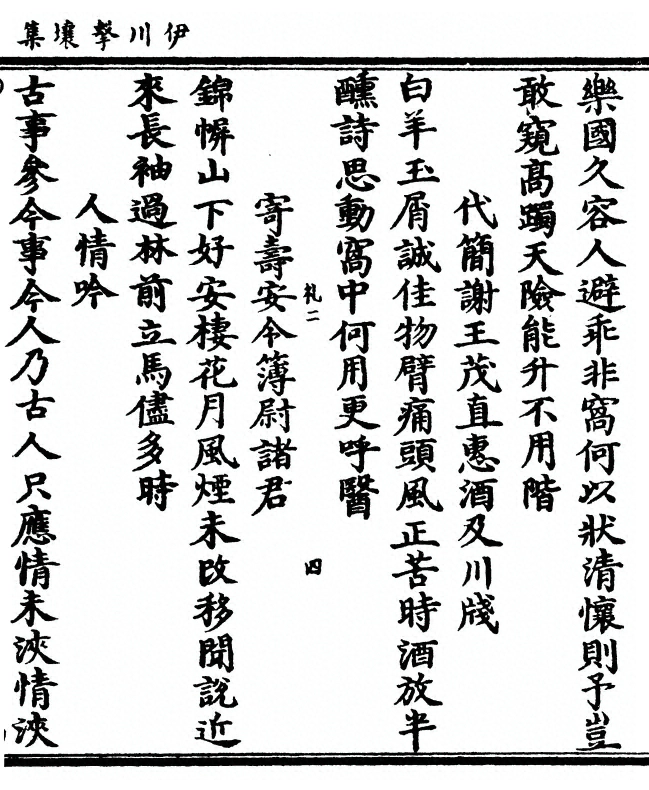 伊川擊壤集
樂國久容人避乖非窩何以狀清懷則予豈
敢窺高躅天險能升不用階
代簡謝王茂直惠酒及川牋
白羊玉屑誠佳物臂痛頭風正苦時酒放半
醺詩思動窩中何用更呼醫
礼二
四
寄壽安令簿尉諸君
錦幈山下好安棲花月風煙未改移聞說近
來長袖過林前立馬儘多時
人情吟
古事參今事今人乃古人只應情未浹情浹